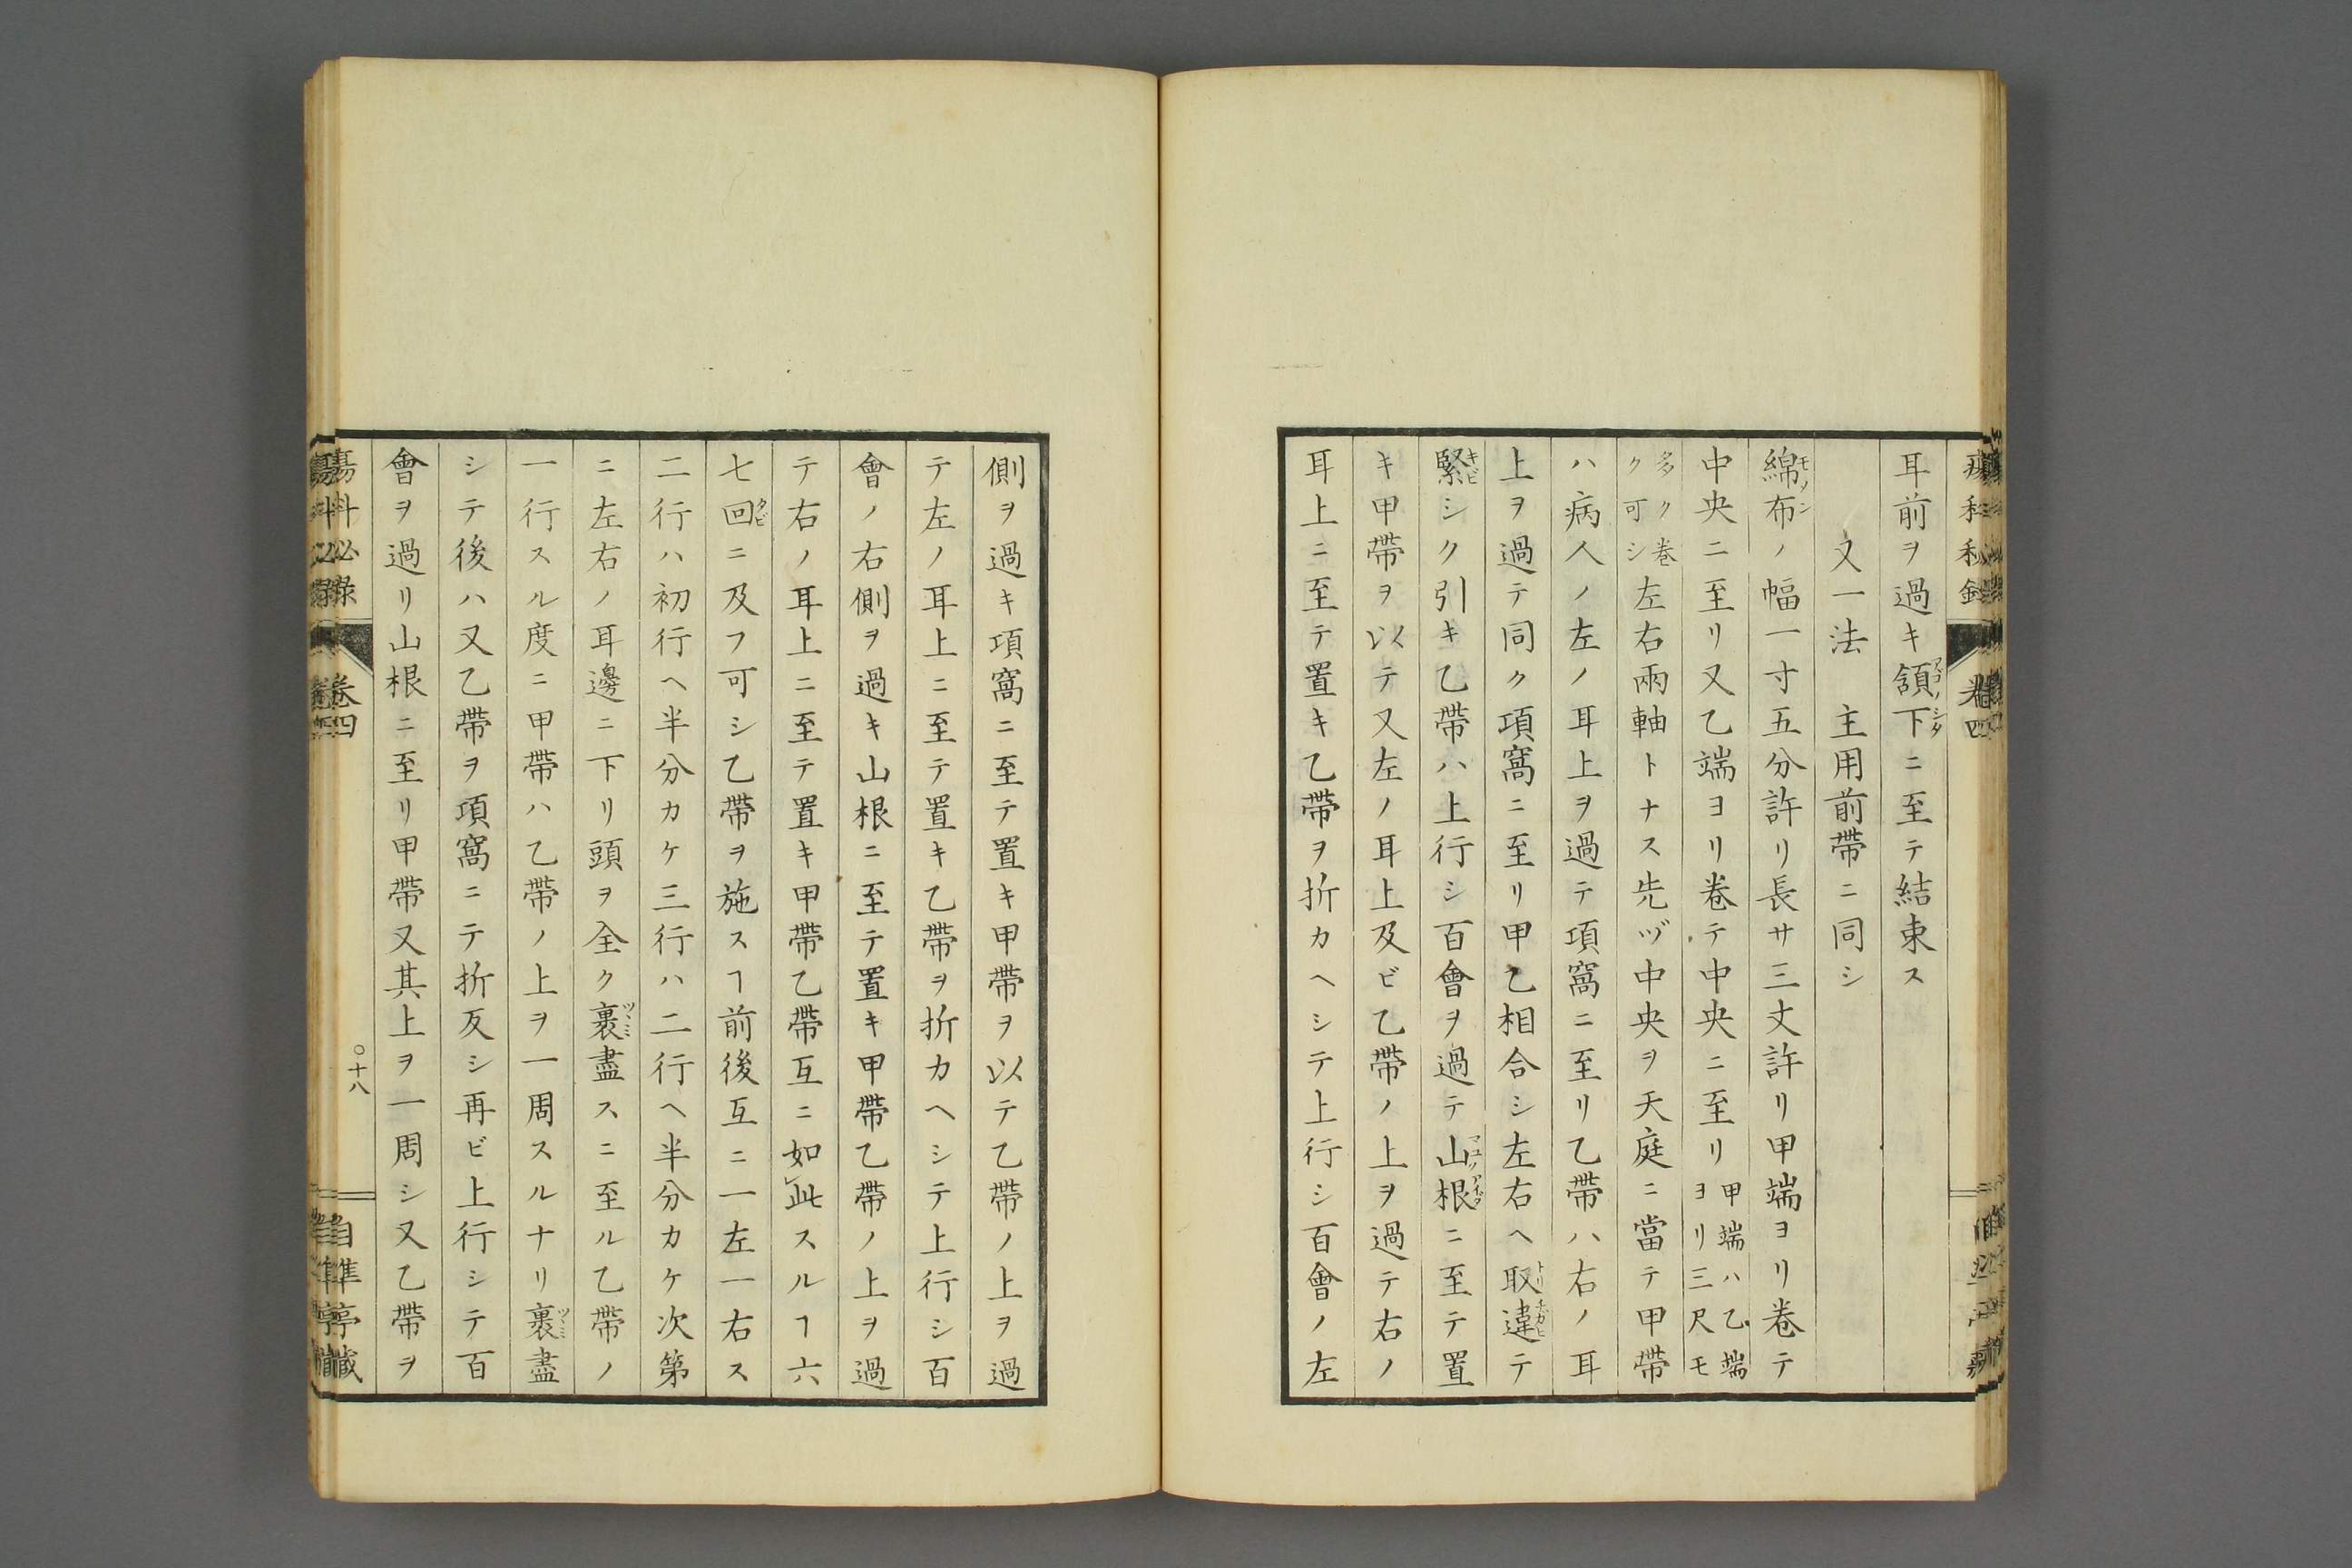 耳前ヲ過キ頷下ニ至テ結束ス
又一法　主用前帶ニ同シ
綿布ノ幅一寸五分許リ長サ三丈許リ甲端ヨリ卷テ
中央ニ至リ又乙端ヨリ卷テ中央ニ至リ甲端ハ乙端ヨリ三尺モ
多ク卷ク可シ左右兩軸トナス先ヅ中央ヲ天庭ニ當テ甲帶
ハ病人ノ左ノ耳上ヲ過テ項窩ニ至リ乙帶ハ右ノ耳
上ヲ過テ同ク項窩ニ至リ甲乙相合シ左右ヘ取違テ
緊シク引キ乙帶ハ上行シ百會ヲ過テ山根ニ至テ置
キ甲帶ヲ以テ又左ノ耳上及ビ乙帶ノ上ヲ過テ右ノ
耳上ニ至テ置キ乙帶ヲ折カヘシテ上行シ百會ノ左
側ヲ過キ項窩ニ至テ置キ甲帶ヲ以テ乙帶ノ上ヲ過
テ左ノ耳上ニ至テ置キ乙帶ヲ折カヘシテ上行シ百
會ノ右側ヲ過キ山根ニ至テ置キ甲帶乙帶ノ上ヲ過
テ右ノ耳上ニ至テ置キ甲帶乙帶互ニ如此スルヿ六
七回ニ及フ可シ乙帶ヲ施スヿ前後互ニ一左一右ス
二行ハ初行ヘ半分カケ三行ハ二行ヘ半分カケ次第
ニ左右ノ耳邊ニ下リ頭ヲ全ク裹盡スニ至ル乙帶ノ
一行スル度ニ甲帶ハ乙帶ノ上ヲ一周スルナリ裹盡
シテ後ハ又乙帶ヲ項窩ニテ折反シ再ビ上行シテ百
會ヲ過リ山根ニ至リ甲帶又其上ヲ一周シ又乙帶ヲ
卷四
〇十八
自準亭藏